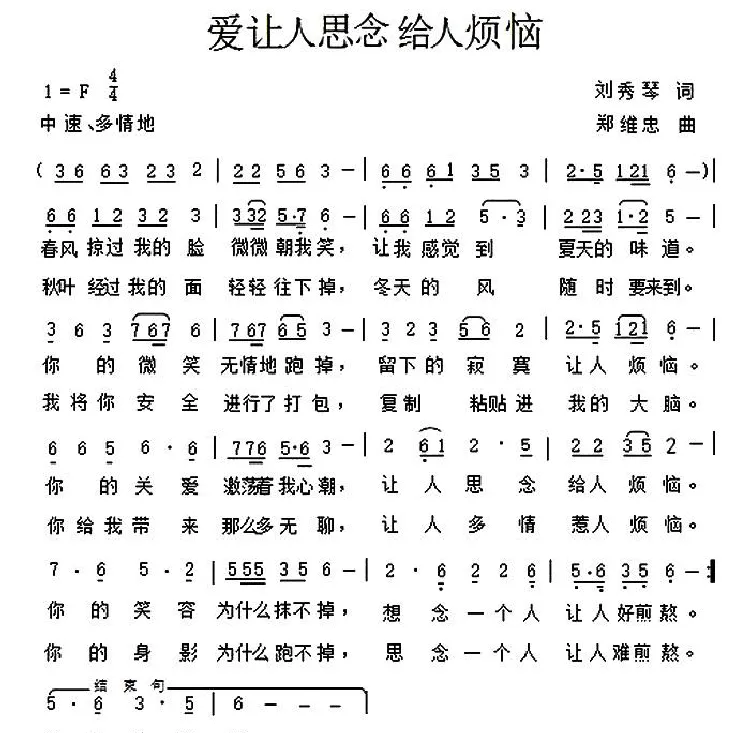 爱让人思念 给人烦恼
1 = F 4/4
刘秀琴 词
中速、多情地
郑维忠 曲
( 36 63 23 2 | 22 56 3 — | 66 61 35 3 | 2·5 121 6 — ) |
66 12 32 3 | 332 5·7 6 — | 66 12 5·3 | 223 1·2 5 —
春风 掠过 我的 脸 微微 朝我笑, 让我 感觉 到 夏天的 味 道。
秋叶 经过 我的 面 轻轻 往下掉, 冬天 的 风 随 时 要来到。
3 6 3 767 6 | 767 65 3 — | 3 2 3 56 2 | 2·5 121 6 —
你 的 微 笑 无情地 跑 掉, 留下的 寂 寞 让人 烦 恼。
我 将 你 安 全 进行了 打 包, 复制 粘贴 进 我的 大 脑。
6 6 5 6 · 6 | 776 5·6 3 — | 2 61 2 · 5 | 22 35 2 —
你 的 关 爱 激荡着 我心 潮, 让 人 思 念 给人 烦 恼。
你 给 我 带 来 那么多 无 聊, 让 人 多 情 惹人 烦 恼。
7 · 6 5 · 2 | 555 35 6 — | 2 · 6 22 6 | 5·6 35 6 — :|
你 的 笑 容 为什么 抹不 掉, 想 念 一 个 人 让人 好煎 熬。
你 的 身 影 为什么 跑不 掉, 思 念 一 个 人 让人 难煎 熬。
结 束 句
5 · 6 3 · 5 | 6 — — — ‖